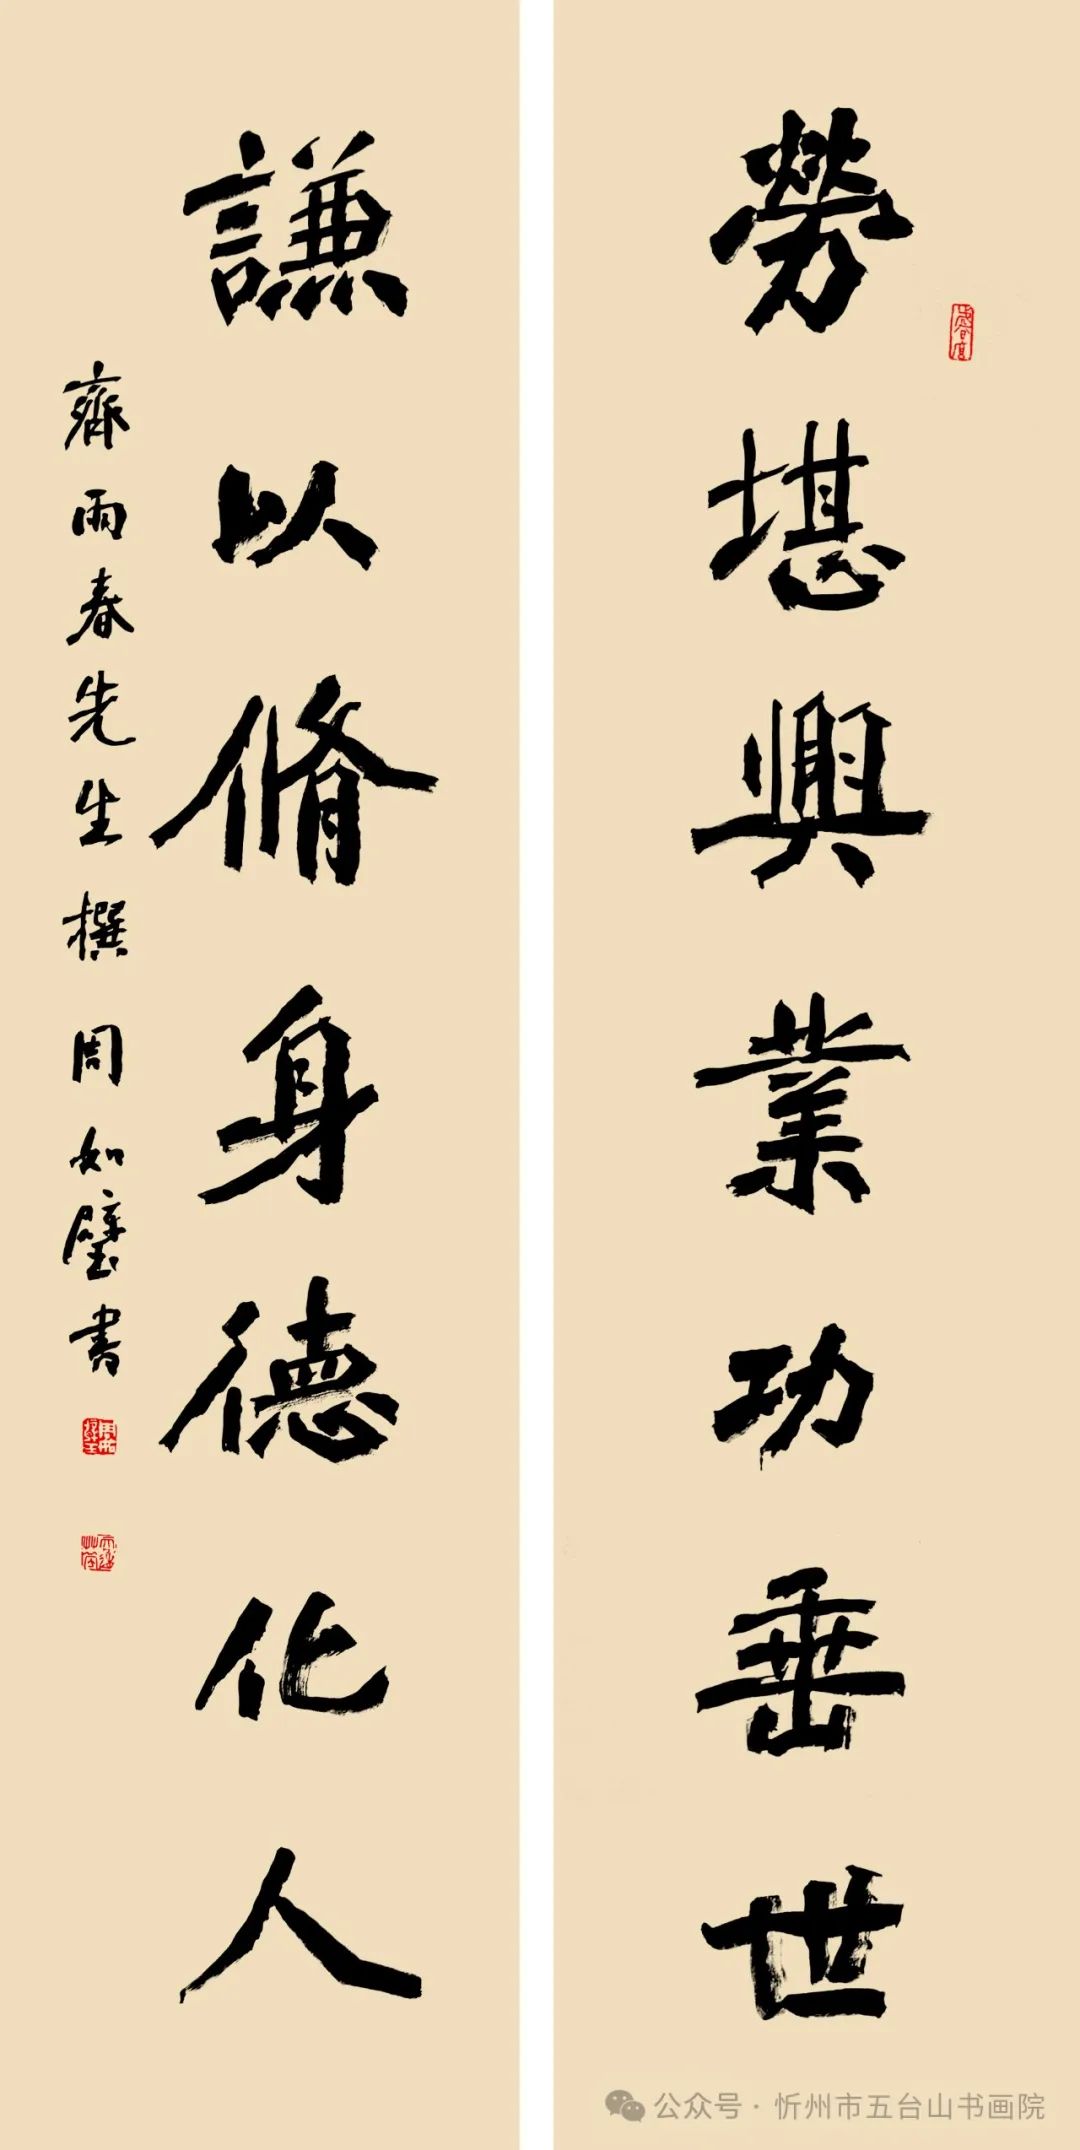 勞堪興業功垂世
謙以脩身德化人
齊雨春先生撰周如璧書
周如璧王
公众号·忻州市五台山书画院